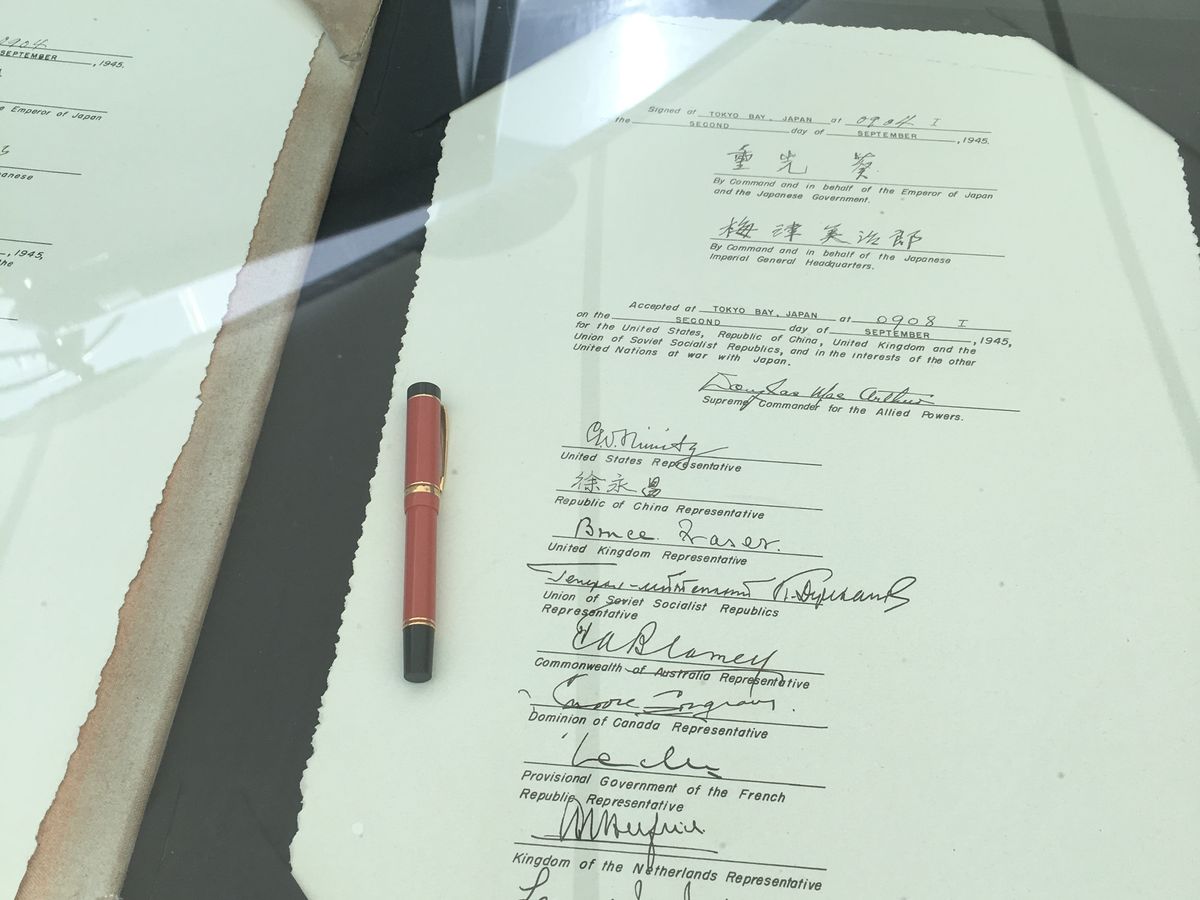 0904
SEPTEMBER , 1945.
e Emperor of Japan
anese
, 1945,
the
Signed at TOKYO BAY, JAPAN at 0904 I
the SECOND day of SEPTEMBER , 1945.
重光 葵
By Command and in behalf of the Emperor of Japan
and the Japanese Government.
梅津美治郎
By Command and in behalf of the Japanese
Imperial General Headquarters.
Accepted at TOKYO BAY, JAPAN at 0908 I
on the SECOND day of SEPTEMBER , 1945,
for the United States, Republic of China, United Kingdom and the
Union of Soviet Socialist Republics, and in the interests of the other
United Nations at war with Japan.
Douglas MacArthur
Supreme Commander for the Allied Powers.
C.W. Nimitz
United States Representative
徐永昌
Republic of China Representative
Bruce Fraser.
United Kingdom Representative
Union of Soviet Socialist Republics
Representative
T A Blamey
Commonwealth of Australia Representative
Dominion of Canada Representative
Provisional Government of the French
Republic Representative
Kingdom of the Netherlands Representative